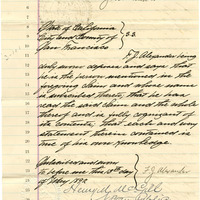 State of California
City and County of } S.S.
San Francisco
F. J. Alexander being
duly sworn deposes and says that
he is the person mentioned in the
foregoing claim and whose name
is subscribed thereto, that he has
read the said claim and the whole
thereof and is fully cognizant of
its contents, that each and every
statement therein contained is
true of his own knowledge.
Subscribed and sworn
to before me this 13th day } F. J. Alexander
of May 190
Henry
Notary Public